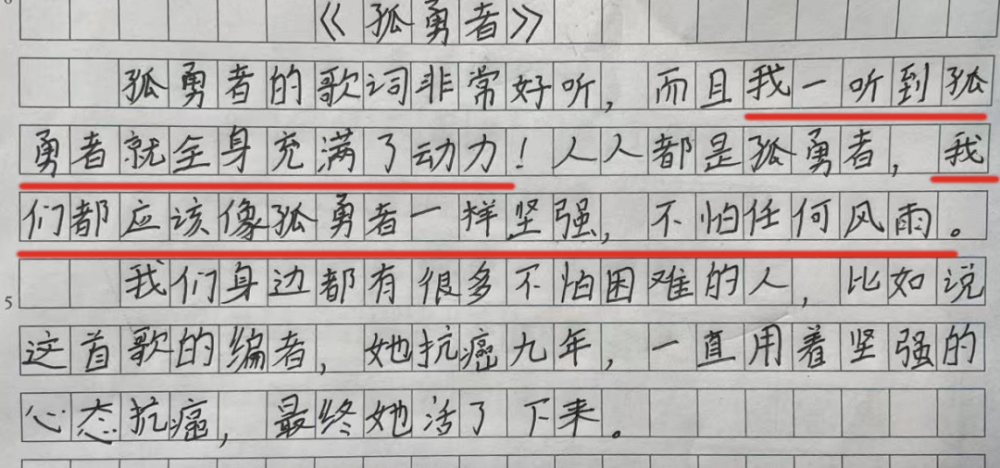 《孤勇者》
孤勇者的歌词非常好听，而且我一听到孤
勇者就全身充满了动力！人人都是孤勇者，我
们都应该像孤勇者一样坚强，不怕任何风雨。
我们身边都有很多不怕困难的人，比如说
5
这首歌的编者，她抗癌九年，一直用着坚强的
心态抗癌，最终她活了下来。